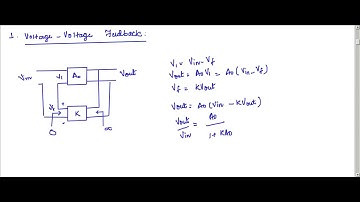 1. Voltage - Voltage Feedback:
Vin
V1
A0
Vout
Vf
+
K
-
0
∞
V1 = Vin - Vf
Vout = A0 V1 = A0 (Vin - Vf)
Vf = KVout
Vout = A0 (Vin - KVout)
Vout / Vin = A0 / 1 + KA0